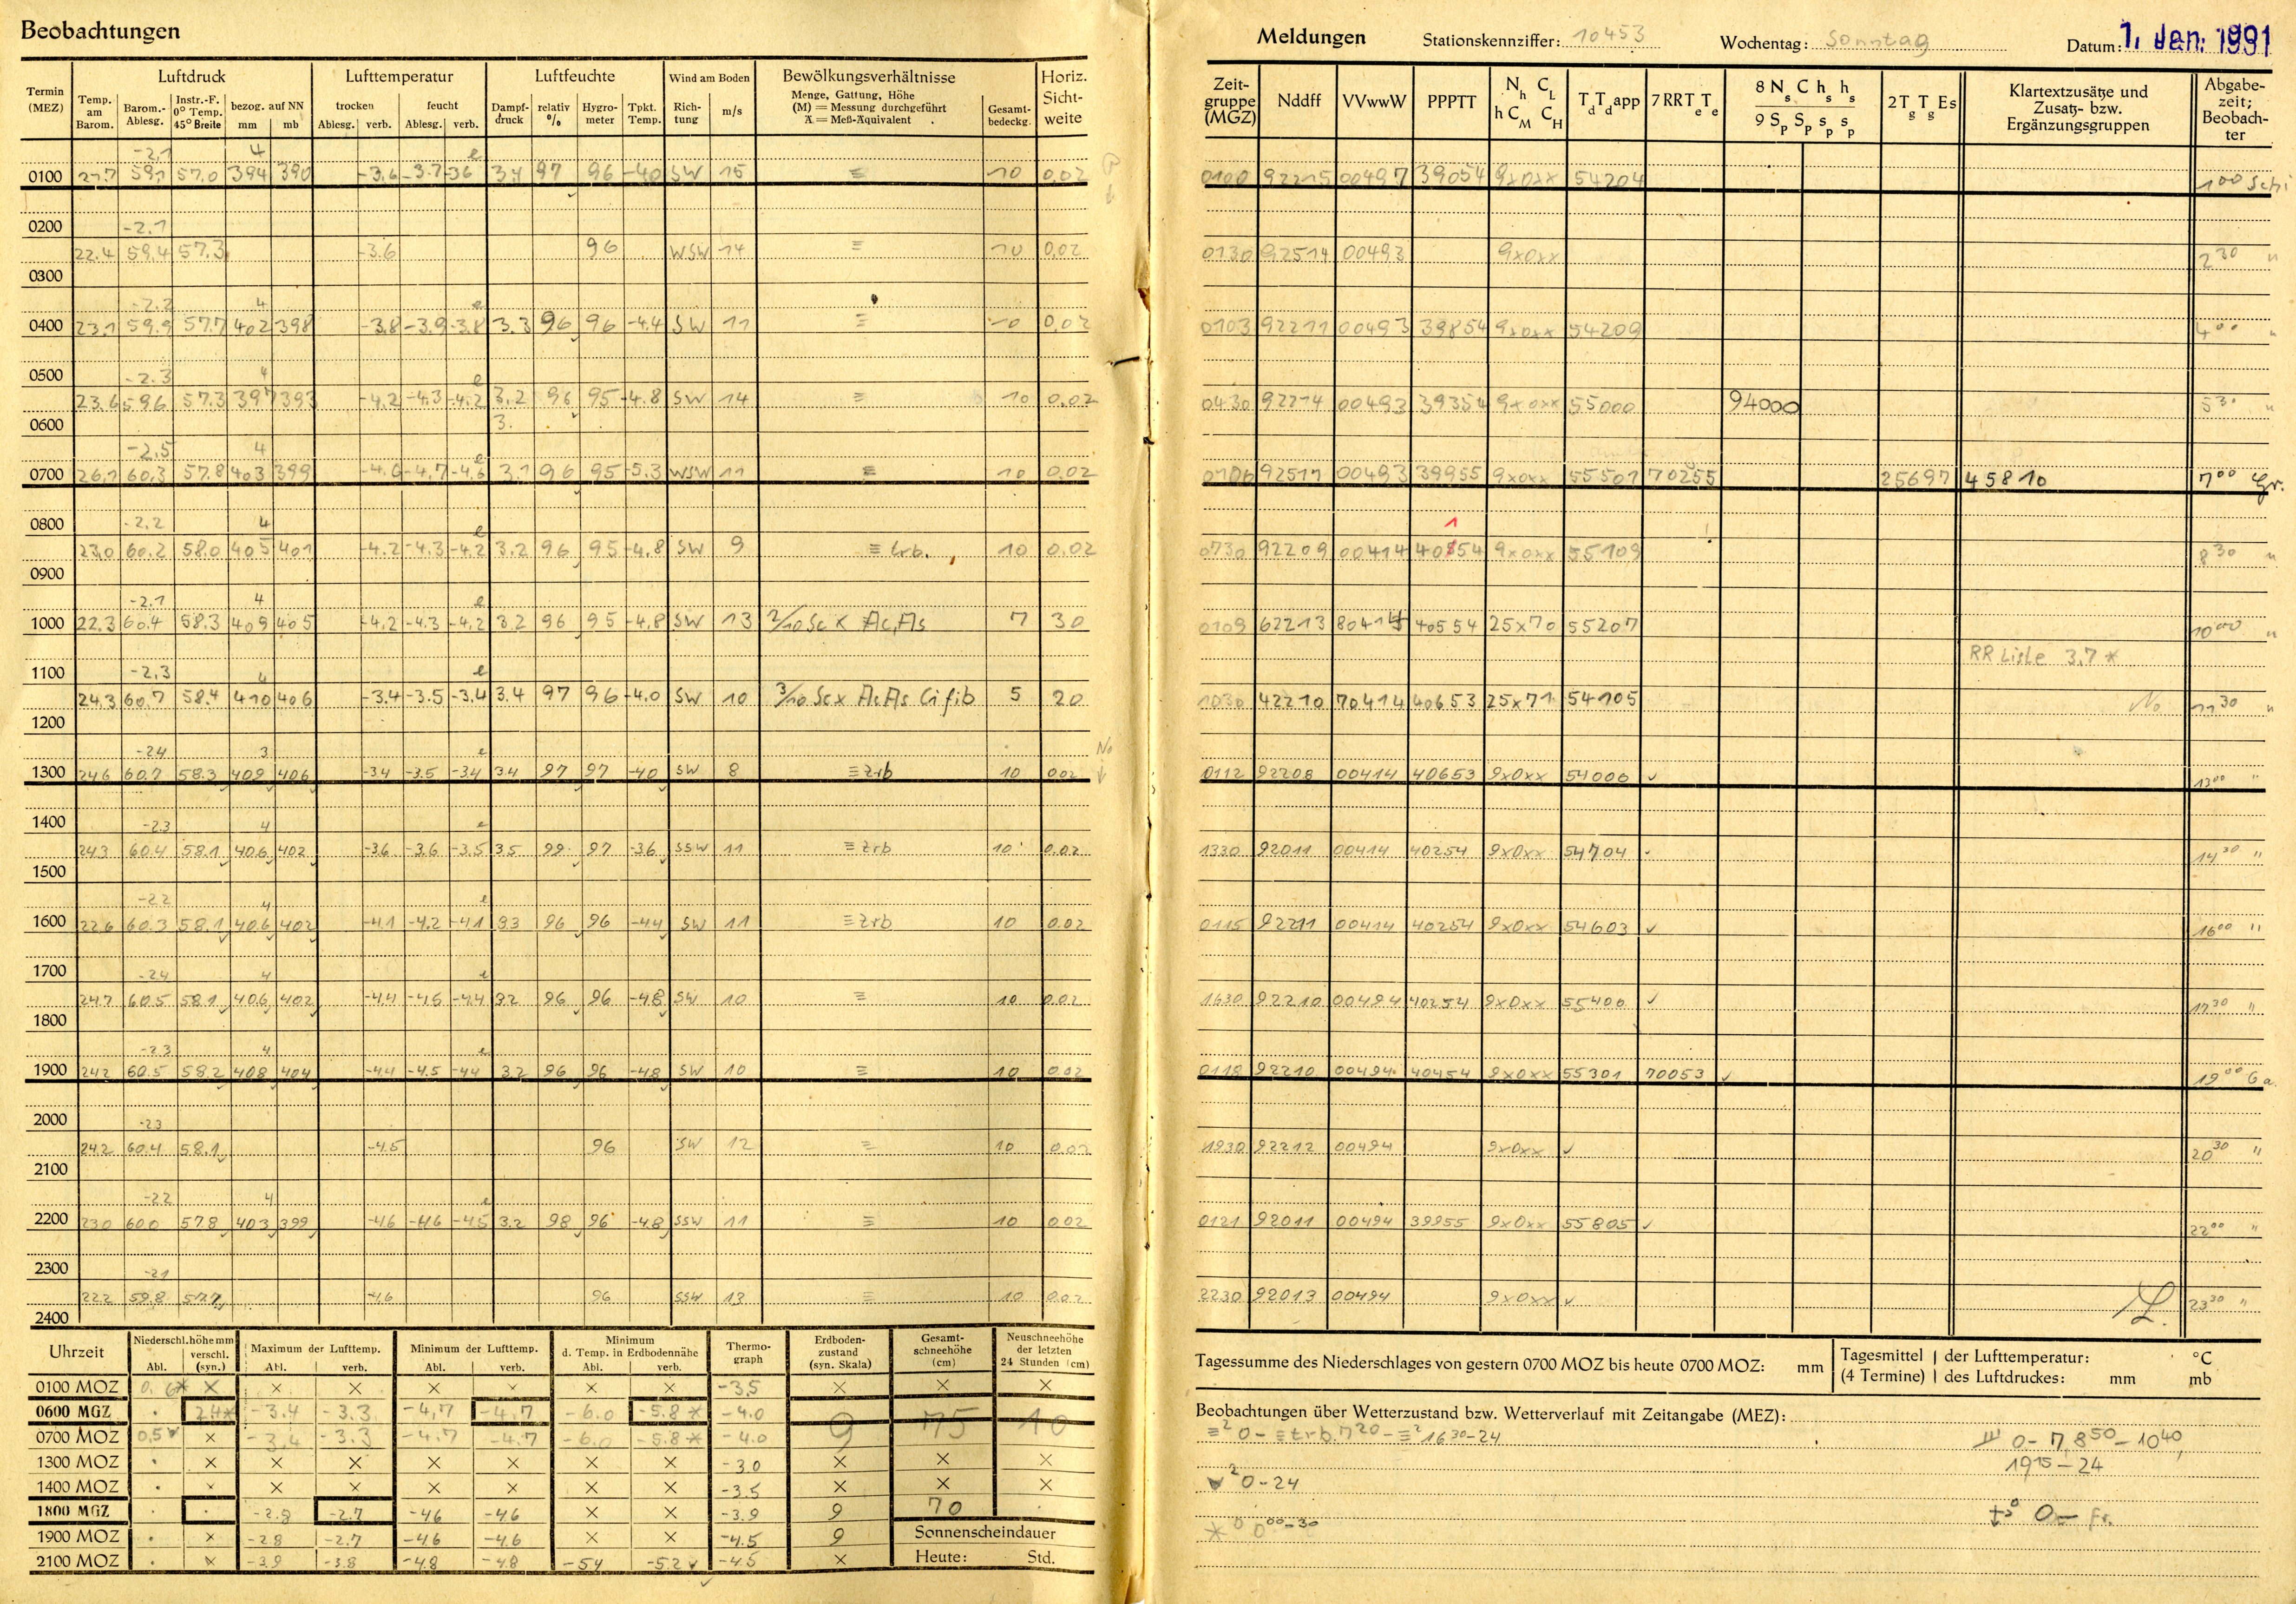 Beobachtungen
Termin (MEZ)
Luftdruck
Temp. am Barom.
Barom.-Ablesg.
Instr.-F. 0° Temp. 45° Breite
bezog. auf NN
mm mb
Lufttemperatur
trocken feucht
Ablesg. verb. Ablesg. verb.
Luftfeuchte
Dampfdruck
relativ %
Hygrometer
Tpkt. Temp.
Wind am Boden
Richtung m/s
Bewölkungsverhältnisse
Menge, Gattung, Höhe
(M) = Messung durchgeführt
Ä = Meß-Äquivalent
Gesamtbedeckg.
Horiz. Sichtweite
-2,1 4 e
0100 59,1 57.0 394 390 -3,6 -3.7 -36 3,4 97 96 -4,0 SW 15 ≡ 10 0,02
0200 -2,1
22.4 59.4 57.3 -3.6 96 WSW 14 ≡ 10 0,02
0300
-2.2 4 e
0400 23,1 59.9 57.7 402 398 -3.8 -3.9 -3.8 3.3 96 96 -4.4 SW 11 ≡ 10 0,02
0500 -2.3 4 e
23.6 596 57.3 397 393 -4.2 -4.3 -4.2 3.2 96 95 -4.8 SW 14 ≡ 10 0.02
0600 3.
-2,5 4 e
0700 26,1 60,3 57.8 403 399 -4.6 -4,7 -4,6 3,1 96 95 -5.3 WSW 11 ≡ 10 0.02
0800 -2,2 4 e
23,0 60.2 58.0 405 401 -4.2 -4.3 -4.2 3.2 96 95 -4.8 SW 9 ≡ trb. 10 0.02
0900
-2.1 4 e
1000 22.3 60.4 58.3 409 405 -4.2 -4.3 -4.2 3.2 96 95 -4,8 SW 13 2/10 Sc x Ac,As 7 30
1100 -2,3 4 e
24,3 60,7 58.4 410 406 -3.4 -3.5 -3.4 3.4 97 96 -4.0 SW 10 3/10 Sc x Ac As Ci fib 5 20
1200
-24 3 e
1300 246 60.7 58.3 409 406 -34 -3.5 -34 34 97 97 -40 SW 8 ≡ trb 10 002
1400 -23 4 e
243 60.4 58.1 40.6 402 -36 -3.6 -3.5 35 99 97 -36 SSW 11 ≡ trb 10 0.02
1500
-22 4 e
1600 226 60.3 58.1 40.6 402 -41 -4.2 -41 33 96 96 -44 SW 11 ≡ trb 10 0.02
1700 -24 4 e
24.7 60.5 58.1 40.6 402 -44 -45 -44 32 96 96 -48 SW 10 ≡ 10 0.02
1800
-23 4 e
1900 242 60.5 58.2 408 404 -44 -4.5 -44 32 96 96 -48 SW 10 ≡ 10 0.02
2000 -23
242 60.4 58.1 -45 96 SW 12 ≡ 10 0.02
2100
-22 4 e
2200 230 600 578 403 399 -46 -46 -45 32 98 96 -48 SSW 11 ≡ 10 002
2300 -21
222 59.8 -46 96 SSW 13 ≡ 10 0.02
2400
Uhrzeit
Niederschl.höhe mm
Abl. verschl. (syn.)
Maximum der Lufttemp.
Abl. verb.
Minimum der Lufttemp.
Abl. verb.
Minimum d. Temp. in Erdbodennähe
Abl. verb.
Thermograph
Erdbodenzustand (syn. Skala)
Gesamtschneehöhe (cm)
Neuschneehöhe der letzten 24 Stunden (cm)
0100 MOZ 0,6* × × × × × × × -3,5 × × ×
0600 MGZ . 2.4* -3.4 -3.3 -4,7 -4.7 -6.0 -5.8 * -4.0 9 75 10
0700 MOZ 0,5 × -3.4 -3.3 -4.7 -4.7 -6.0 -5.8 * -4.0
1300 MOZ . × × × × × × × -3.0 × × ×
1400 MOZ . × × × × × × × -3.5 × × ×
1800 MGZ . . -2.8 -2.7 -46 -46 × × -3.9 9 70 .
1900 MOZ . × -28 -2.7 -46 -4.6 × × -4.5 9
2100 MOZ . × -39 -3.8 -48 -48 -54 -5.2 -45 ×
Sonnenscheindauer
Heute: Std.
Meldungen Stationskennziffer: 10453 Wochentag: Sonntag Datum: 1. Jan. 1991
Zeitgruppe (MGZ)
Nddff
VVwwW
PPPTT
Nh CL
h CM CH
Td Td app
7 RRTe Te
8 Ns C hs hs
9 Sp Sp sp sp
2 Tg Tg Es
Klartextzusätze und Zusatz- bzw. Ergänzungsgruppen
Abgabezeit; Beobachter
0100 92215 00497 39054 9x0xx 54204 1⁰⁰ Schi
0130 92514 00493 9x0xx 2³⁰ "
0103 92211 00493 39854 9x0xx 54209 4⁰⁰ "
0430 92214 00493 39354 9x0xx 55000 94000 5³⁰ "
0106 92511 00493 39955 9x0xx 55501 70255 25697 45810 7⁰⁰ Gr.
1
0730 92209 00414 40854 9x0xx 55109 8³⁰ "
0109 62213 80414 40554 25x70 55207 10⁰⁰ "
RR Liste 3.7 *
1030 42210 70414 40653 25x71 54105 No 11³⁰ "
0112 92208 00414 40653 9x0xx 54006 ✓ 13⁰⁰ "
1330 92011 00414 40254 9x0xx 54704 14³⁰ "
0115 92211 00414 40254 9x0xx 54603 ✓ 16⁰⁰ "
1630 92210 00494 40254 9x0xx 55400 ✓ 17³⁰ "
0118 92210 00494 40454 9x0xx 55301 70053 ✓ 19⁰⁰ Ga.
1930 92212 00494 9x0xx ✓ 20³⁰ "
0121 92011 00494 39955 9x0xx 55805 ✓ 22⁰⁰ "
2230 92013 00494 9x0xx ✓ 23³⁰ "
Tagessumme des Niederschlages von gestern 0700 MOZ bis heute 0700 MOZ: mm
Tagesmittel (4 Termine)
der Lufttemperatur: °C
des Luftdruckes: mm mb
Beobachtungen über Wetterzustand bzw. Wetterverlauf mit Zeitangabe (MEZ):
≡² 0 - ≡trb. 7²⁰ - ≡² 16³⁰-24
0 - 7, 8⁵⁰ - 10⁴⁰,
19¹⁵ - 24
² 0 - 24
0 - fr.
*⁰ 0⁰⁰-³⁰